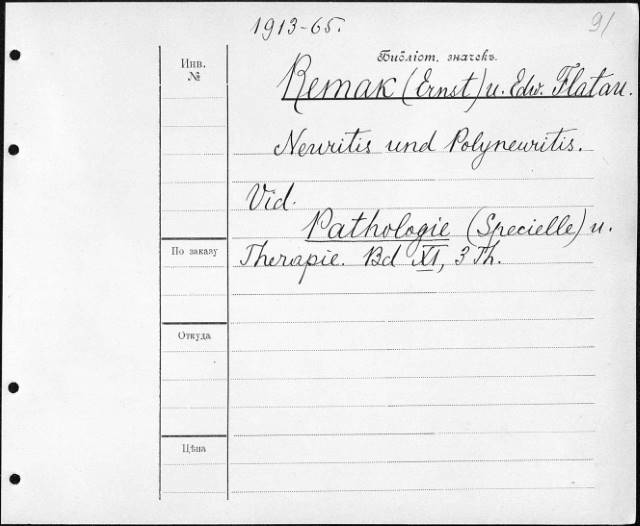 1913-65.
91
Инв.
№
Библіот. значекъ.
Remak (Ernst) u. Edw. Flatau.
Neuritis und Polyneuritis.
Vid.
Pathologie (Specielle) u.
Therapie. Bd XI, 3 Th.
По заказу
Откуда
Цѣна